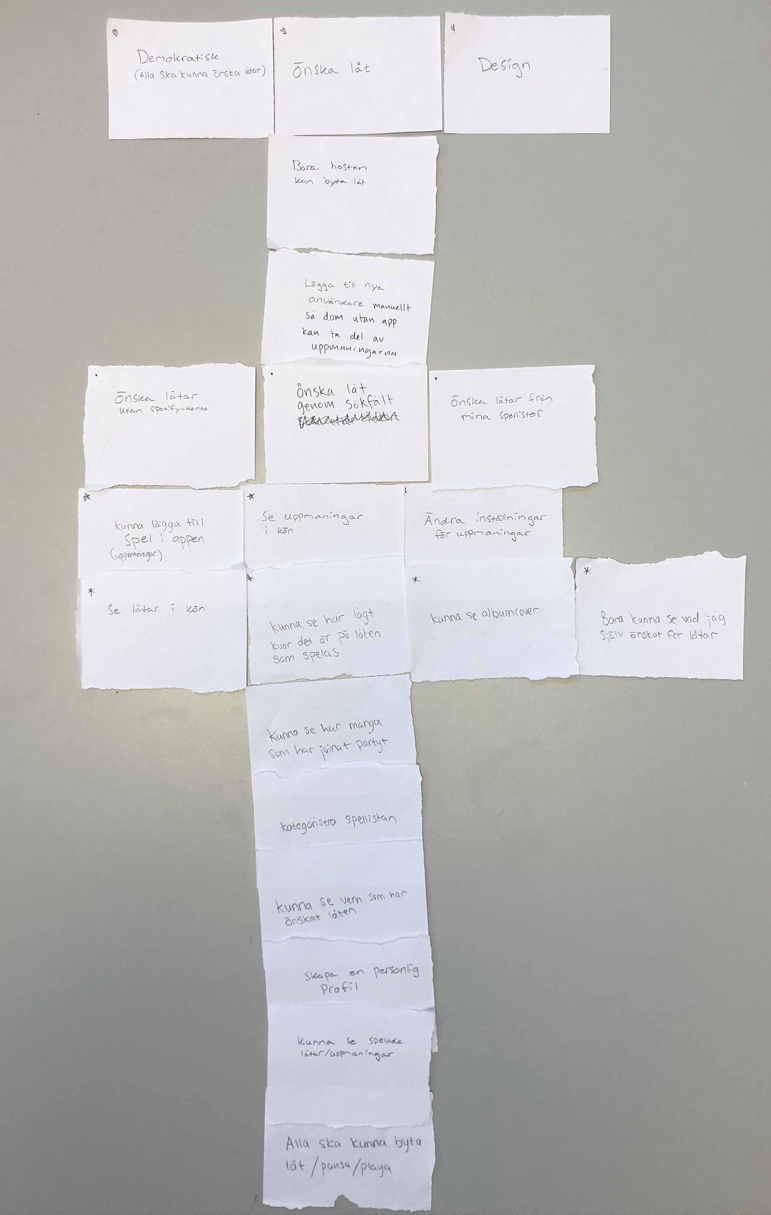 Demokratisk
(Alla ska kunna önska låtar)
Önska låt
Design
Bara hosten
kan byta låt
Lägga till nya
användare manuellt
så dom utan app
kan ta del av
uppmaningarna
Önska låtar
utan spotify-konto
Önska låt
genom sökfält
Önska låtar från
mina spellistor
kunna lägga till
spel i appen
(uppmaningar)
Se uppmaningar
i kön
Ändra inställningar
för uppmaningar
Se låtar i kön
kunna se hur lågt
kvar det är på låten
som spelas
kunna se albumcover
Bara kunna se vad jag
själv önskat för låtar
Kunna se hur många
som har joinat partyt
kategorisera spellistan
kunna se vem som har
önskat låten
Skapa en personlig
profil
Kunna se spelade
låtar/uppmaningar
Alla ska kunna byta
låt/pausa/playa